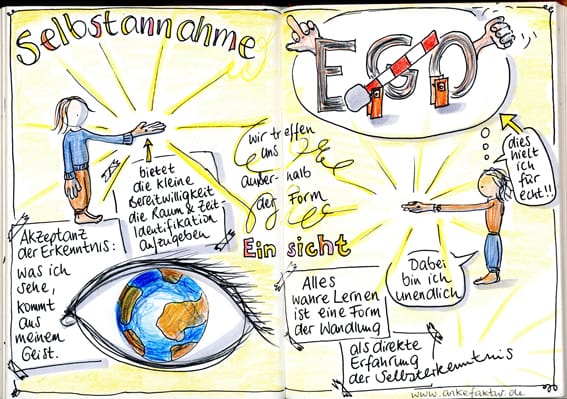 Selbstannahme
bietet
die kleine
Bereitwilligkeit
die Raum & Zeit-
Identifikation
aufzugeben
Akzeptanz
der Erkenntnis:
was ich
sehe,
kommt
aus
meinem
Geist.
wir treffen
uns
außerhalb
der Form
Einsicht
EGO
dies
hielt
ich
für
echt!!
Dabei
bin ich
unendlich
Alles
wahre Lernen
ist eine Form
der Wandlung
als direkte
Erfahrung
der Selbsterkenntnis
www.ankefaktur.de